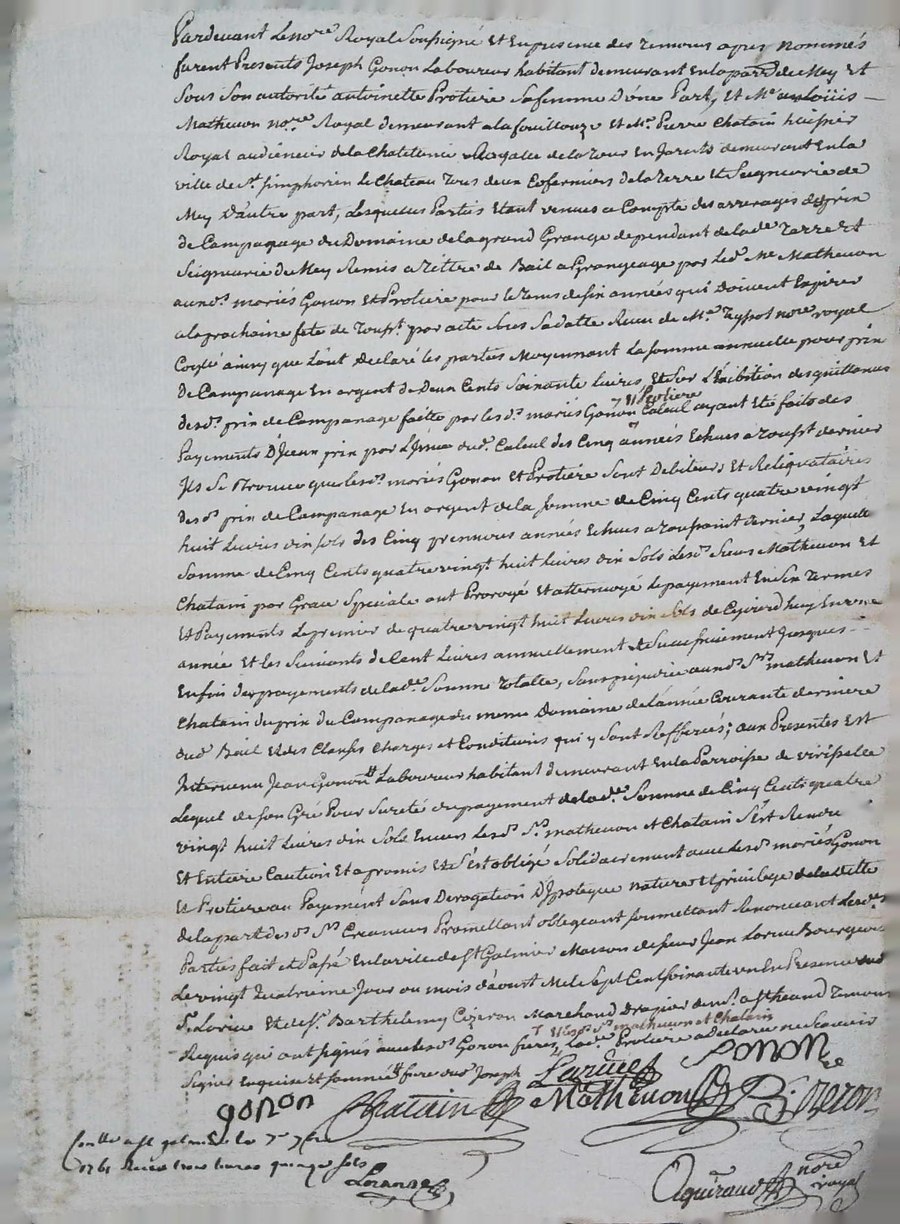 Pardevant le no.re Royal Soussigné et en presence des temoins apres nommés
furent Presents Joseph Gonon Laboureur habitant demeurant en la parr.e de Mey et
sous son autorité antoinette Protiere sa femme D'une Part, et M.e Louis
Matheuon no.re Royal demeurant a la fouillouze et M.e Pierre Chatain huissier
Royal audiencier de la Chatelenie Royalle de la tour en Jarests demeurant en la
ville de S.t Simphorien le Chateau tous deux Cofermiers de la terre et Seigneurie de
Mey D'autre part, Lesquelles Parties etant venues a Compte des arrerages du prix
de Campanage du Domaine de la grand Grange dependant de lad.e Terre et
Seigneurie de Mey Remis a tittre de Bail a Grangeage par led. M.e Matheuon
auxd.s mariés Gonon et Protiere pour le tems de six années qui doivent Expirer
a la prochaine fete de Touss.t par acte sous sa datte Receu de M.e no.re royal
ainsy que l'ont declaré les parties Moyennant la somme annuelle pour prix
de Campanage en argent de Deux Cents Soixante Livres, et sur l'Exibition des quittances
desd. prix de Campanage faitte par lesd.s mariés Gonon et Protiere Calcul ayant eté faits des
Payements D'Jceux prix par l'Jssue dud. Calcul des Cinq années Echues a Touss.t dernier
Jls se trouve que lesd.s mariés Gonon et Protiere sont Debiteurs et Reliquataires
desd. prix de Campanage en argent de la somme de Cinq Cents quatre vingt
huit Livres dix sols des Cinq premieres années Echues a Toussaint dernier, Laquelle
somme de Cinq Cents quatre vingt huit Livres dix sols lesd.s Sieurs Matheuon et
Chatain par Grace Speciale ont Prorogé et attermoyé le payement en Six Termes
et Payements le premier de quatre vingt huit Livres dix sols de Cejourd'huy en une
année et les suivants de Cent Livres annuellement et Successivement Jusques
en fin des payements de lad.e Somme Totalle, Sans prejudice auxd.s S.rs matheuon et
Chatain du prix du Campanage du meme Domaine de l'année Courante derniere
dud. Bail et des Clauses Charges et Conditions qui y sont Refferées; aux Presentes est
Jntervenu Jean Gonon Laboureur habitant demeurant en la Parroisse de
Lequel de son Gré Pour Sureté du payement de lad.e Somme de Cinq Cents quatre
vingt huit Livres dix Sols Envers lesd.s S.rs matheuon et Chatain s'est Rendu
et Entiere Caution et a promis et s'est obligé Solidairement avec lesd.s mariés Gonon
et Protiere au Payement Sans Derogation D'Jpoteque nature et privilege de la dette
de la part desd.s S.rs Creanciers Promettant obligeant soumettant Renonceant lesd.es
Parties fait et Passé en la ville de S.t Galmier Maison de sieur Jean Larue Bourgeois
Le vingt quatrieme Jour du mois d'aoust Mil Sept Cent soixante un En Presence dud.
S.r Larue et de S.r Barthelemy Cizeron Marchand Temoins
Requis qui ont signés avec lesd.s Gonon freres et lesd.s S.rs matheuon et Chatain lad.e Protiere a declaré ne Scavoir
Signer Enquise et sommée
Larue Gonon
gonon Chatain Matheuon B. Cizeron
Con.llé a S.t galmier le 7.re
1761 Receu trois livres quinze sols
no.re
royal